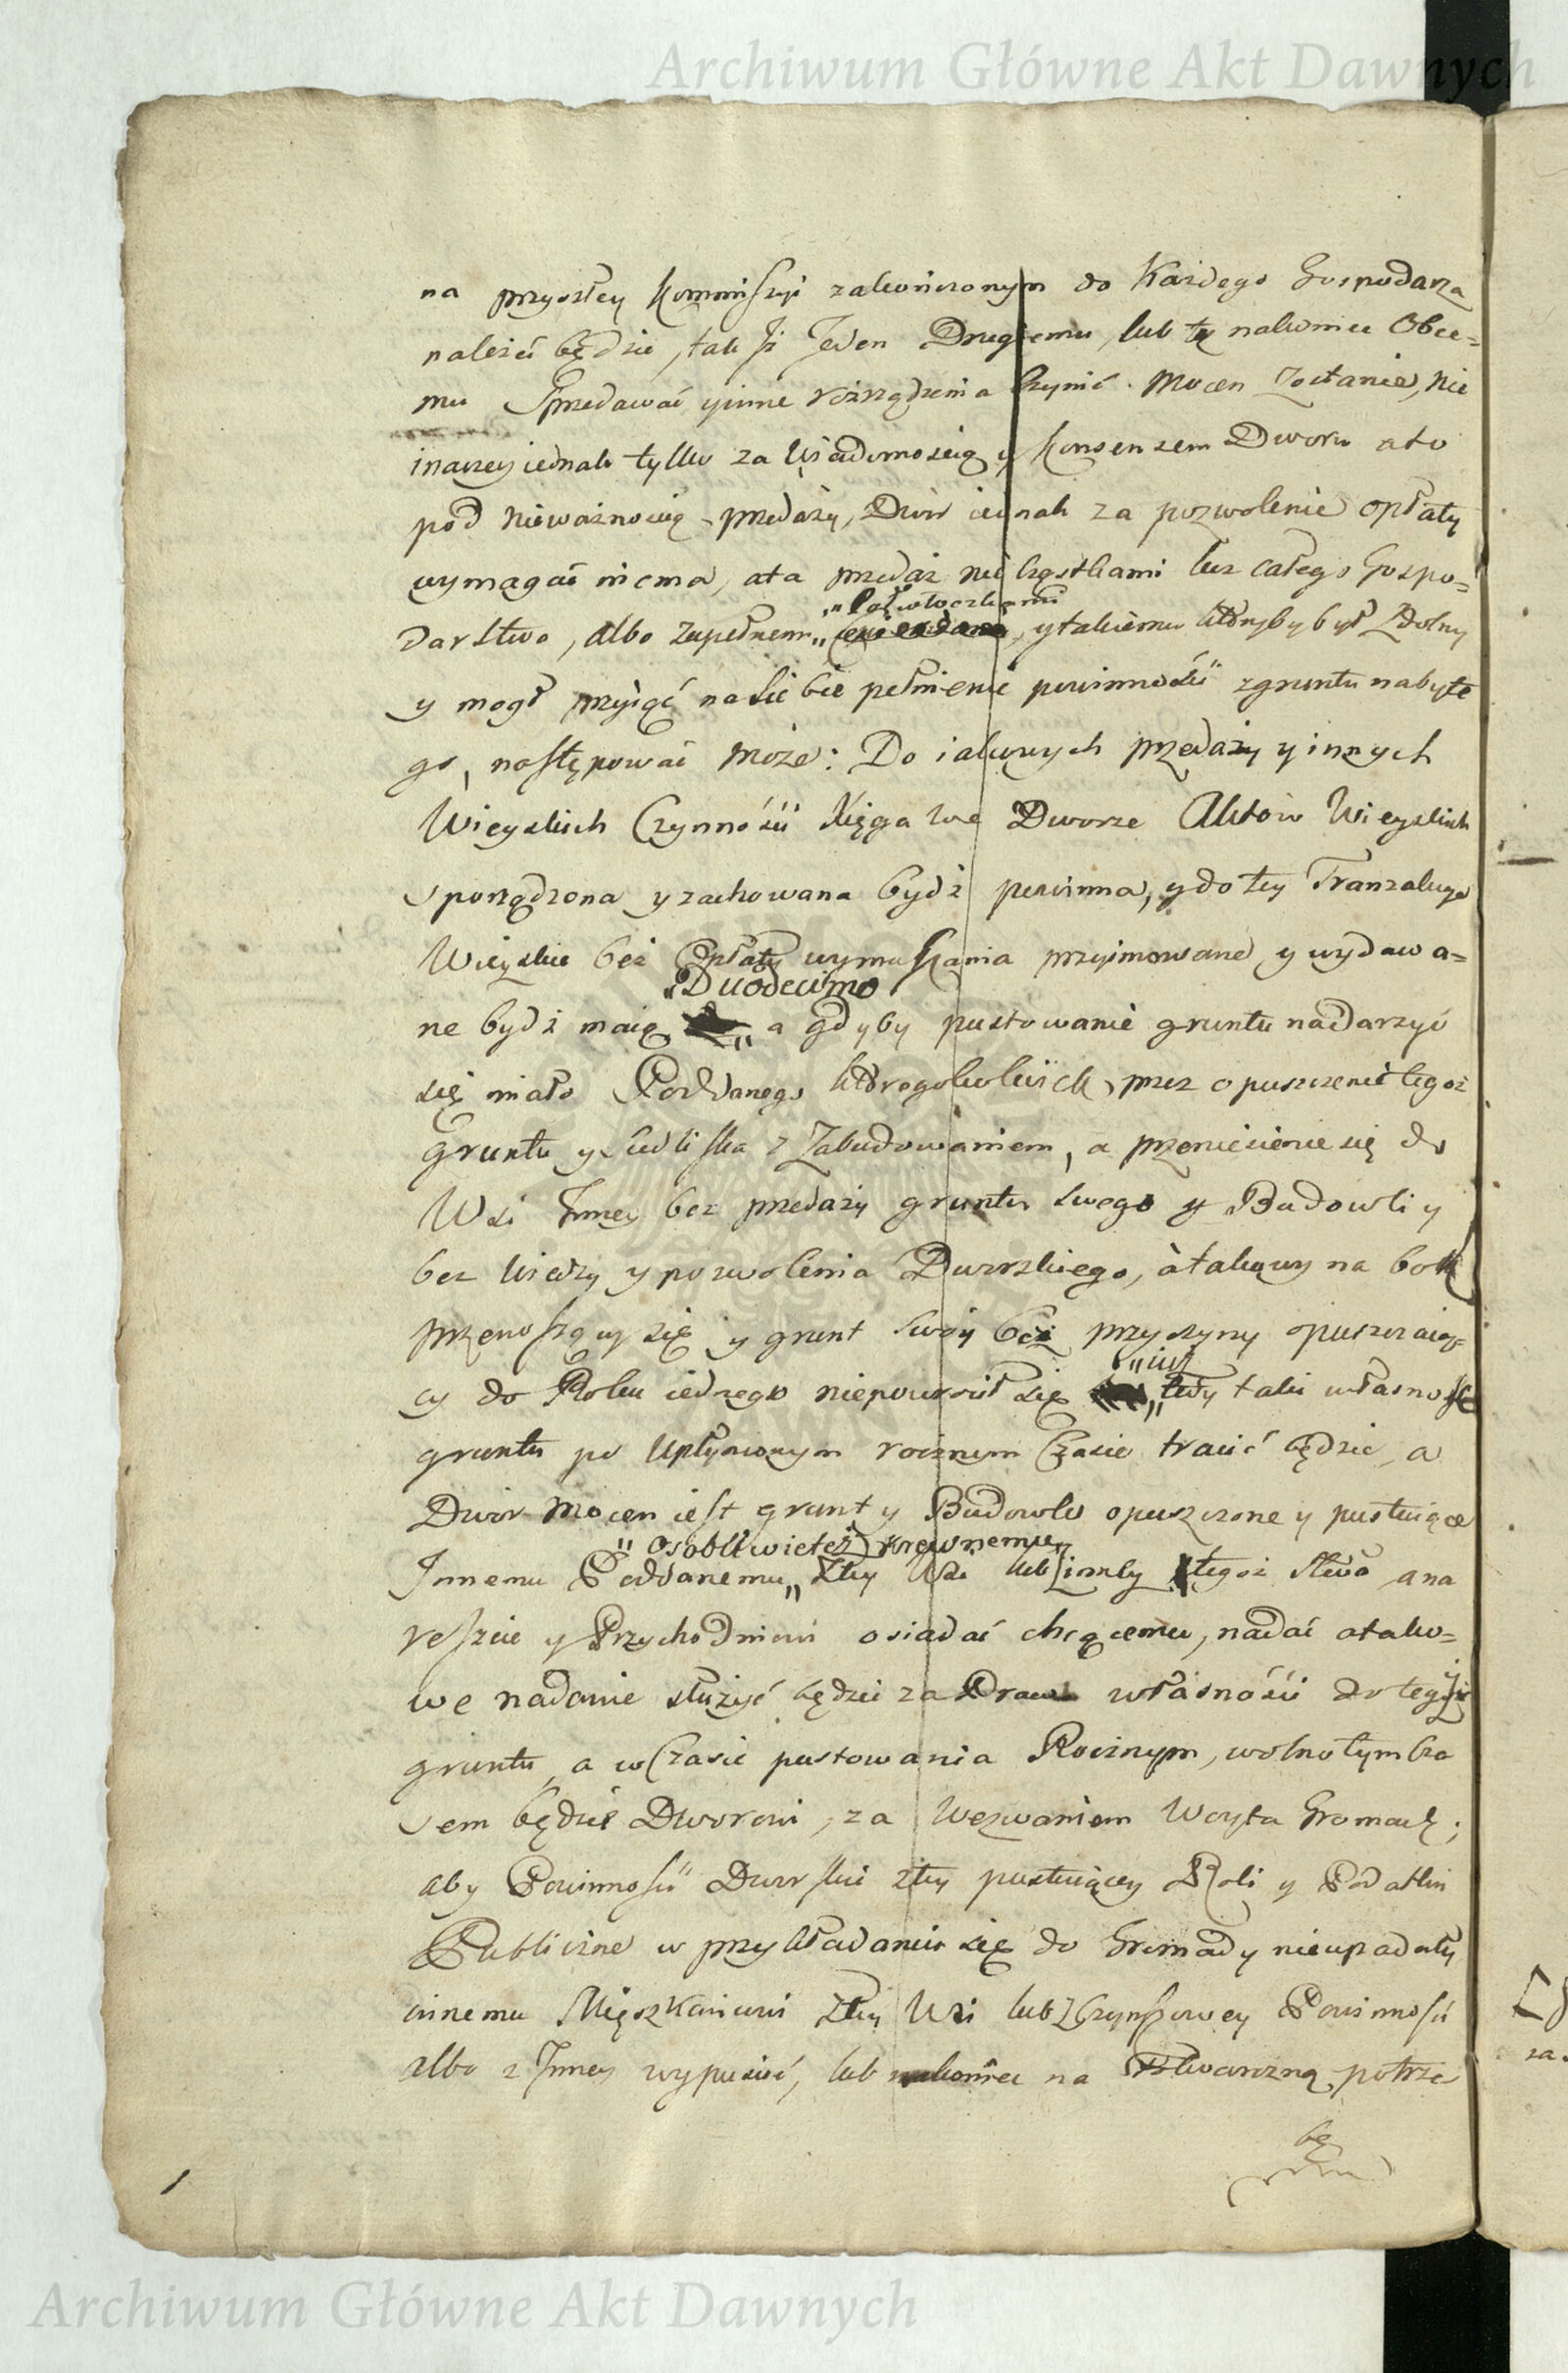 Archiwum Główne Akt Dawnych
na przyszłey Kommissyi zakończonym do Każdego Gospodarza
należeć będzie, tak iż Jeden Drugiemu, lub też nakoniec Obce=
mu Sprzedawać y inne rozrządzenia Czynić Mocen Zostanie, nie
inaczey iednak tylko za Wiadomością y Konsensem Dworu a to
pod nieważnością przedaży, Dwór iednak za pozwolenie opłaty
wymagać niema, a ta przedaż nie Cząstkami lecz całego Gospo=
„Półwłoczkami
darstwa, albo zupełnem„ , y takiemu któryby był Zdolny
y mogł przyiąć na siebie pełnienie powinności z gruntu nabyte
go, następować może: Do iakowych przedaży y innych
Wieyskich Czynności Xięga we Dworze Aktów Wieyskich
sporządzona y zachowana bydź powinna, y do tey Tranzakcye
Wieyskie bez Opłaty wymuszania przyimowane y wydawa=
„Duodecimo
ne bydź maią „ a gdyby pustowanie gruntu nadarzyć
się miało Poddanego któregokolwiek, przez opuszczenie tegoż
gruntu y siedliska z Zabudowaniem, a przeniesienie się do
Wsi Inney bez przedaży gruntu swego y Budowli y
bez wiedzy y pozwolenia Dworskiego, a takowy na bok
przenoszący się y grunt swóy bez przyczyny opuszczaią=
„iuż
cy do Roku iednego niepowrócił się „ tedy taki własność
gruntu po Upłynionym rocznym Czasie tracić będzie, a
Dwór Mocen iest grunt y Budowle opuszczone y pustuiące
„osobliwie też krewnemu„
Innemu Poddanemu„ z tey Wsi lub z inney tegoż Stwa a na
reszcie y Przychodniowi osiadać chcącemu, nadać a tako=
we nadanie służyć będzie za Prawo własności do tegoż
gruntu, a w Czasie pustowania Rocznym, wolno tym Cza
sem będzie Dworowi, za Wezwaniem Woyta Gromady;
aby Powinności Dworskie z tey pustuiącey Roli y Podatki
Publiczne w przykładaniu się do Gromady nieupadały
innemu Mięszkańcowi z tey Wsi lub z Czynszowey Powinności
albo z Inney wypuścić, lub nakoniec na Folwarczną potrze
bę
Archiwum Główne Akt Dawnych